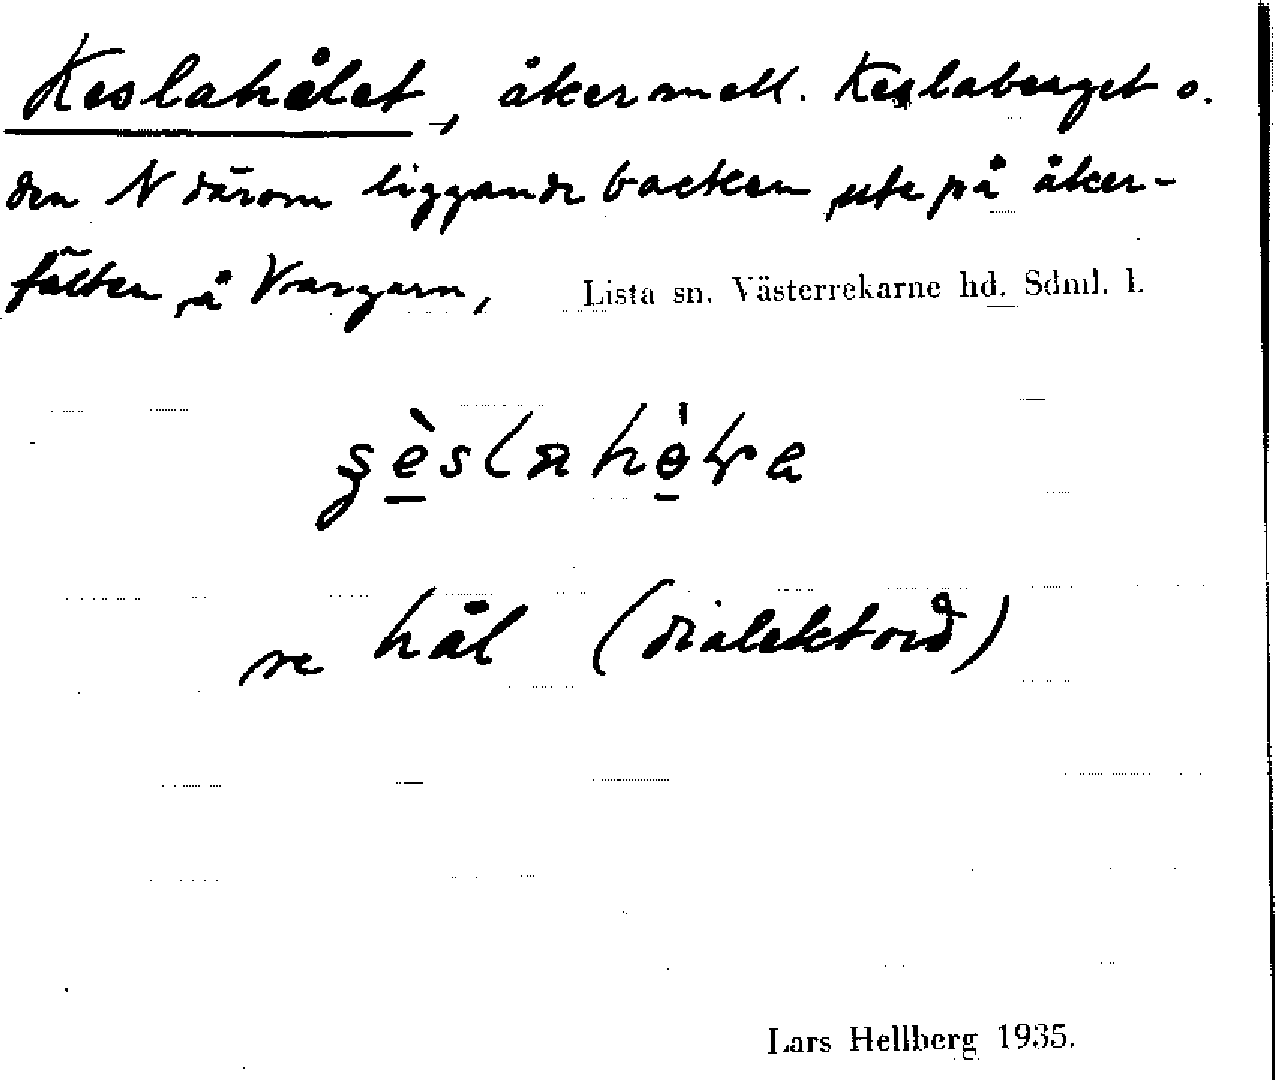 Keslahålet, åker mell. Keslaberget o.
den N därom liggande backen ute på åker-
fälten å Vargarn,
Lista sn. Västerrekarne hd. Sdml. l.
se hål (dialektord)
Lars Hellberg 1935.